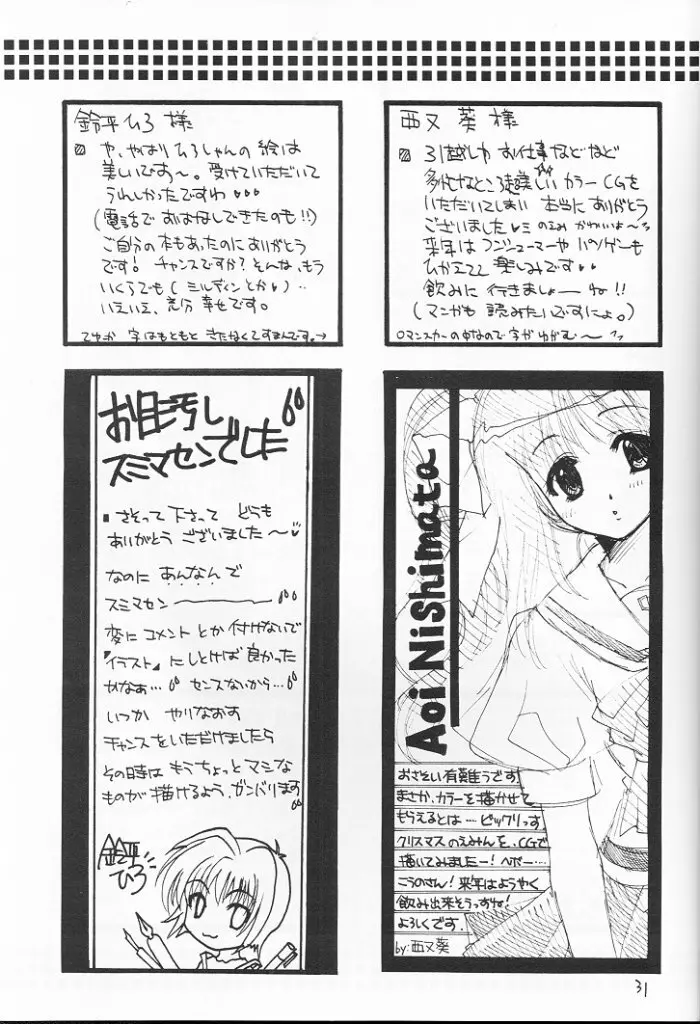 鈴平ひろ 様
や、やはり ひろしゃんの 絵は
美しいです〜。受けていただいて
うれしかったですわ
(電話で おはなしできたのも!!)
ご自分の本もあったのに ありがとう
です! チャンスですか? そんな、もう
いくらでも( ミルディンとか )‥
いえいえ、充分 幸せです。
てゆか 字はもともと きたなくてすまんです。→
西又 葵 様
お仕事などなど
多忙なところ 美しい カラー CGを
いただいてしまい 本当に ありがとう
ございました のえみ かわいいよ〜
来年は コンシューマーや パソゲーも
ひかえてて 楽しみです
飲みに 行きましょー ね!!
(マンガも 読みたいですにょ。)
ロマンスカーの中なので 字が ゆがむ〜
お目汚し
スミマセンでした
さそって下さって どうも
ありがとう ございました 〜
なのに あんなんで
スミマセン
変に コメント とか 付けないで
『イラスト』 にしとけば 良かった
かなぁ… センスないから…
いつか やりなおす
チャンスを いただけましたら
その時は もうちょっと マシな
ものが 描けるよう、ガンバります
鈴平
ひろ
Aoi Nishimata
おさそい有難うです
まさか、カラーを描かせて
もらえるとは… ビックリっす
クリスマスのえみんを、CGで
描いてみましたー! ヘボー…
こうのさん! 来年はようやく
飲み出来そうっすね!
よろしくです。
by:西又葵
31